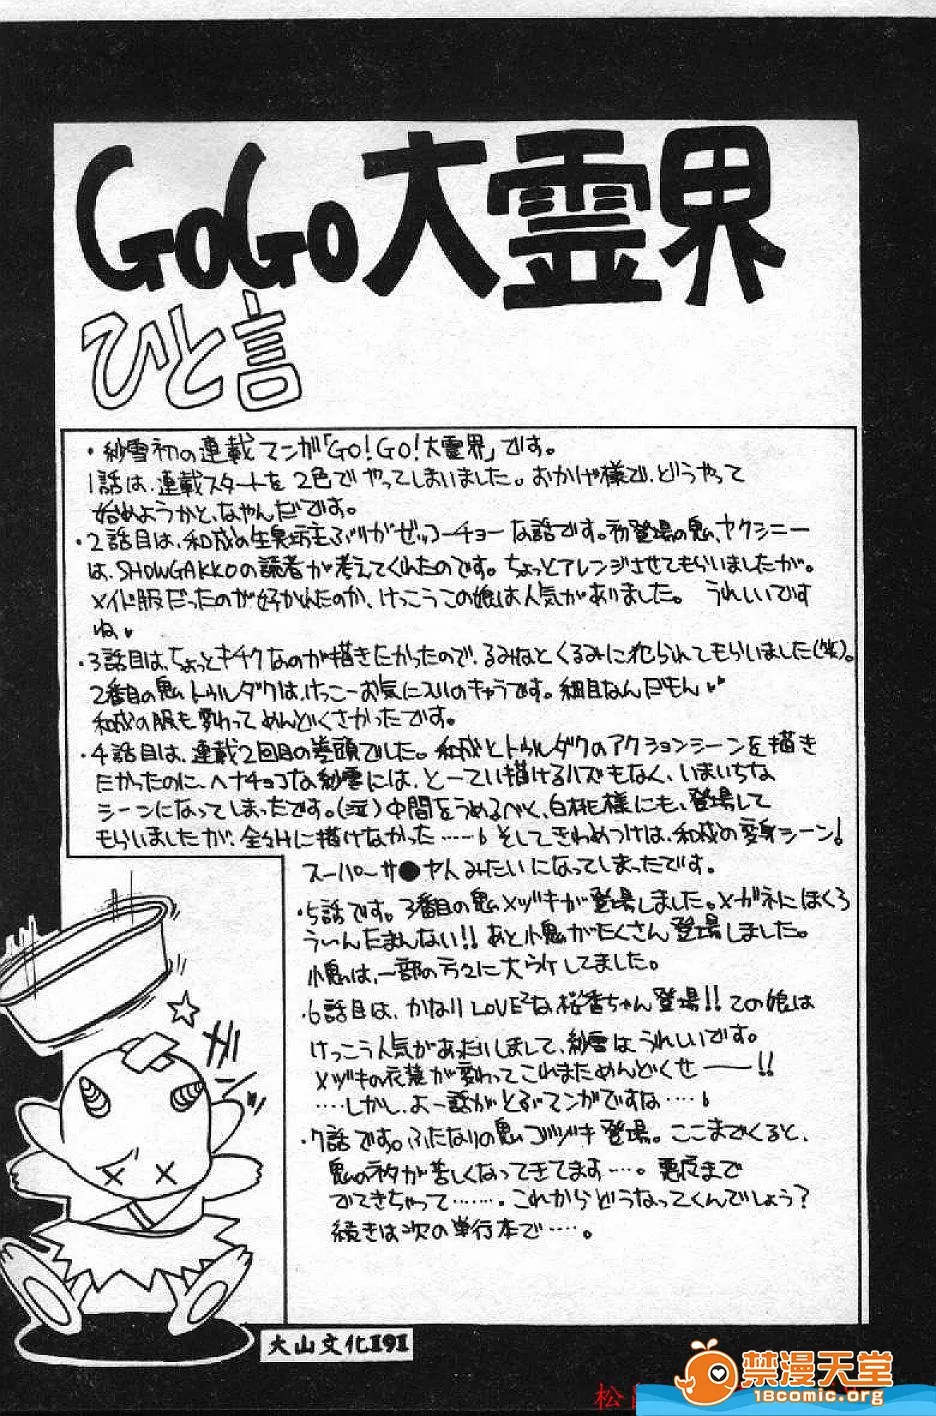 GoGo大霊界
ひと言
・紗雪初の連載マンガ「GO!GO!大霊界」です。
1話は、連載スタートを2色でやってしまいました。おかげ様で、どうやって
始めようかと、なやんだです。
・2話目は、和成の生臭坊主ぶりがゼッコーチョーな話です。初登場の鬼、ヤクシニー
は、SHOWGAKKOの読者が考えてくれたのです。ちょっとアレンジさせてもらいましたが。
メイド服だったのが好かれたのか、けっこうこの娘は人気がありました。 うれしいです
ね。
・3話目は、ちょっとキチクなのが描きたかったので、るみなとくるみに犯られてもらいました(笑)。
2番目の鬼トゥルダクは、けっこーお気に入りのキャラです。細目なんだもん
和成の服も変わってめんどくさかったです。
・4話目は、連載2回目の巻頭でした。和成とトゥルダクのアクションシーンを描き
たかったのに、ヘナチョコな紗雪には、とーてい描けるハズもなく、いまいちな
シーンになってしまったです。(泣)中間をうめるべく、白桃様にも、登場して
もらいましたが、全然に描けなかった……。そしてきわめつけは、和成の変身シーン!
スーパーサ●ヤ人みたいになってしまったです。
・5話です。3番目の鬼メズキが登場しました。メガネにほくろ
うぃんたまんない!!あと小鬼がたくさん登場しました。
小鬼は、一部の方々に大ウケしてました。
・6話目は、かなりLOVE²な桜香ちゃん登場!!この娘は
けっこう人気があったりしまして、紗雪は、うれしいです。
メヅキの衣装が変わってこれまためんどくせ――!!
……しかし、よー話がとぶマンガですな……。
・7話です。ふたなりの鬼ゴヅキ登場。ここまでくると、
鬼のネタが苦しくなってきてます…。悪魔まで
でてきちゃって……。これからどうなってくんでしょう?
続きは次の単行本で……。
大山文化191
禁漫天堂
18comic.org
松